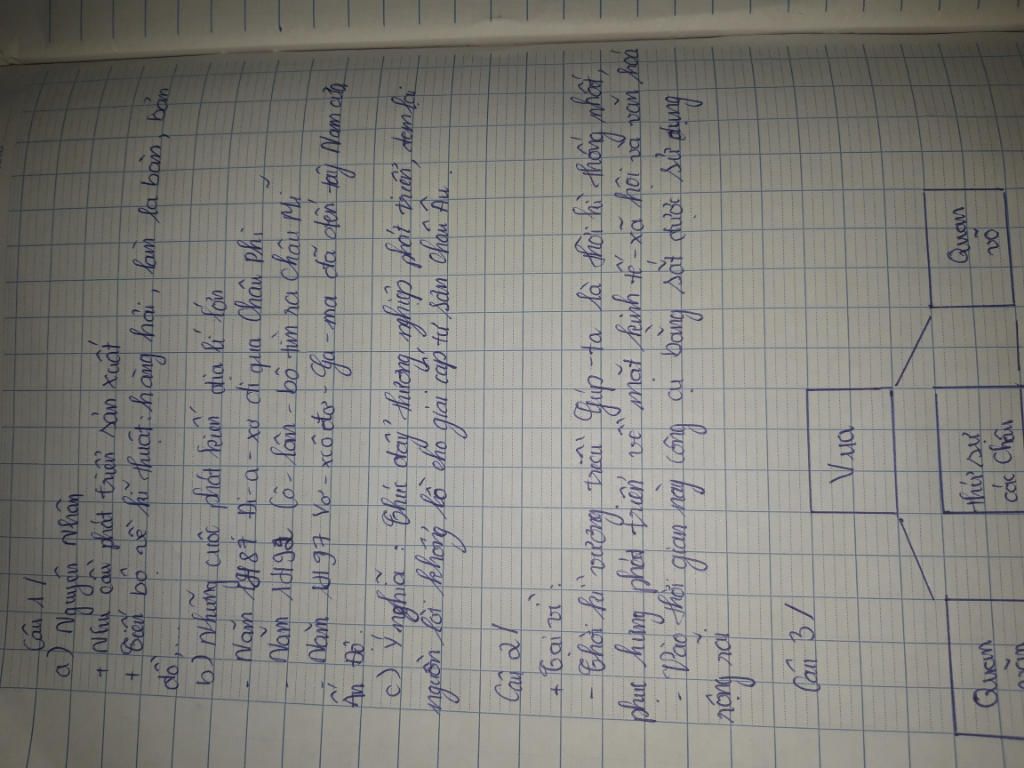 Câu 1/
a) Nguyên Nhân
+ Nhu cầu phát triển sản xuất
+ Tiến bộ về kĩ thuật: hàng hải, làm la bàn, bản
đồ,...
b) Những cuộc phát kiến địa lí lớn
- Năm 1487 Đi-a-xơ đi qua Châu Phi
- Năm 1492 Cô-lôm-bô tìm ra Châu Mĩ
- Năm 1497 Va-xcô đơ-Ga-ma đã đến tây Nam của
Ấn Độ.
c) Ý nghĩa: Thúc đẩy thương nghiệp phát triển, đem lại
nguồn lợi khổng lồ cho giai cấp tư sản châu Âu.
Câu 2/
+ Tại vì:
- Thời kì vương triều Gúp-ta là thời kì thống nhất,
phục hưng phát triển về mặt kinh tế-xã hội và văn hoá
- Vào thời gian này công cụ bằng sắt được sử dụng
rộng rãi
Câu 3/
Vua
Quan văn
thứ sử các châu
Quan võ